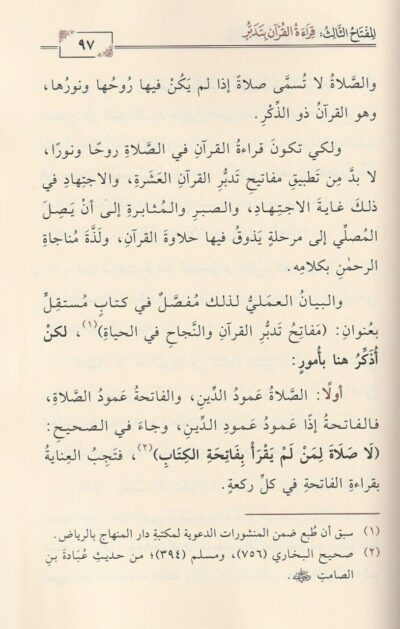 المفتاح الثالث: قِرَاءَةُ القُرْآنِ بِتَدَبُّرٍ
٩٧
والصَّلاةُ لا تُسمَّى صلاةً إذا لم يَكُنْ فيها رُوحُها ونورُها،
وهو القرآنُ ذو الذِّكْرِ.
ولكي تكونَ قراءةُ القرآنِ في الصَّلاةِ روحًا ونورًا،
لا بدَّ مِن تَطبيقِ مفاتيحِ تَدبُّرِ القرآنِ العَشَرةِ، والاجتِهادِ في
ذلكَ غايـةَ الاجتِـهادِ، والصبـرِ والمُـثابـرةِ إلى أنْ يَصِلَ
المُصلِّي إلى مرحلةٍ يَذوقُ فيها حلاوةَ القرآنِ، ولَذَّةَ مُناجاةِ
الرحمٰنِ بكلامِه.
والبيانُ العـمَليُّ لـذلك مُفصَّلٌ في كتابٍ مُستقِلٍّ
بعُنوانِ: (مَفاتِحُ تَدبُّرِ القرآنِ والنَّجاحِ في الحياةِ)(١)، لكنْ
أُذَكِّرُ هنا بأُمورٍ:
أولًا: الصَّلاةُ عَمودُ الدِّينِ، والفاتحةُ عَمودُ الصَّلاةِ،
فـالفـاتحةُ إذًا عَمودُ عَمودِ الدِّينِ، وجاءَ في الصحيحِ:
(لَا صَلَاةَ لِمَنْ لَمْ يَقْرَأْ بِفَاتِحَةِ الكِتَابِ)(٢)، فتَجِبُ العِنايةُ
بقراءةِ الفاتحةِ في كلِّ ركعةٍ.
(١) سبق أن طُبع ضمن المنشورات الدعوية لمكتبةِ دار المنهاج بالرياض.
(٢) صحيح البخاري (٧٥٦)، ومسلم (٣٩٤)؛ من حديثِ عُبَادَةَ بنِ
الصامتِ ﵁.